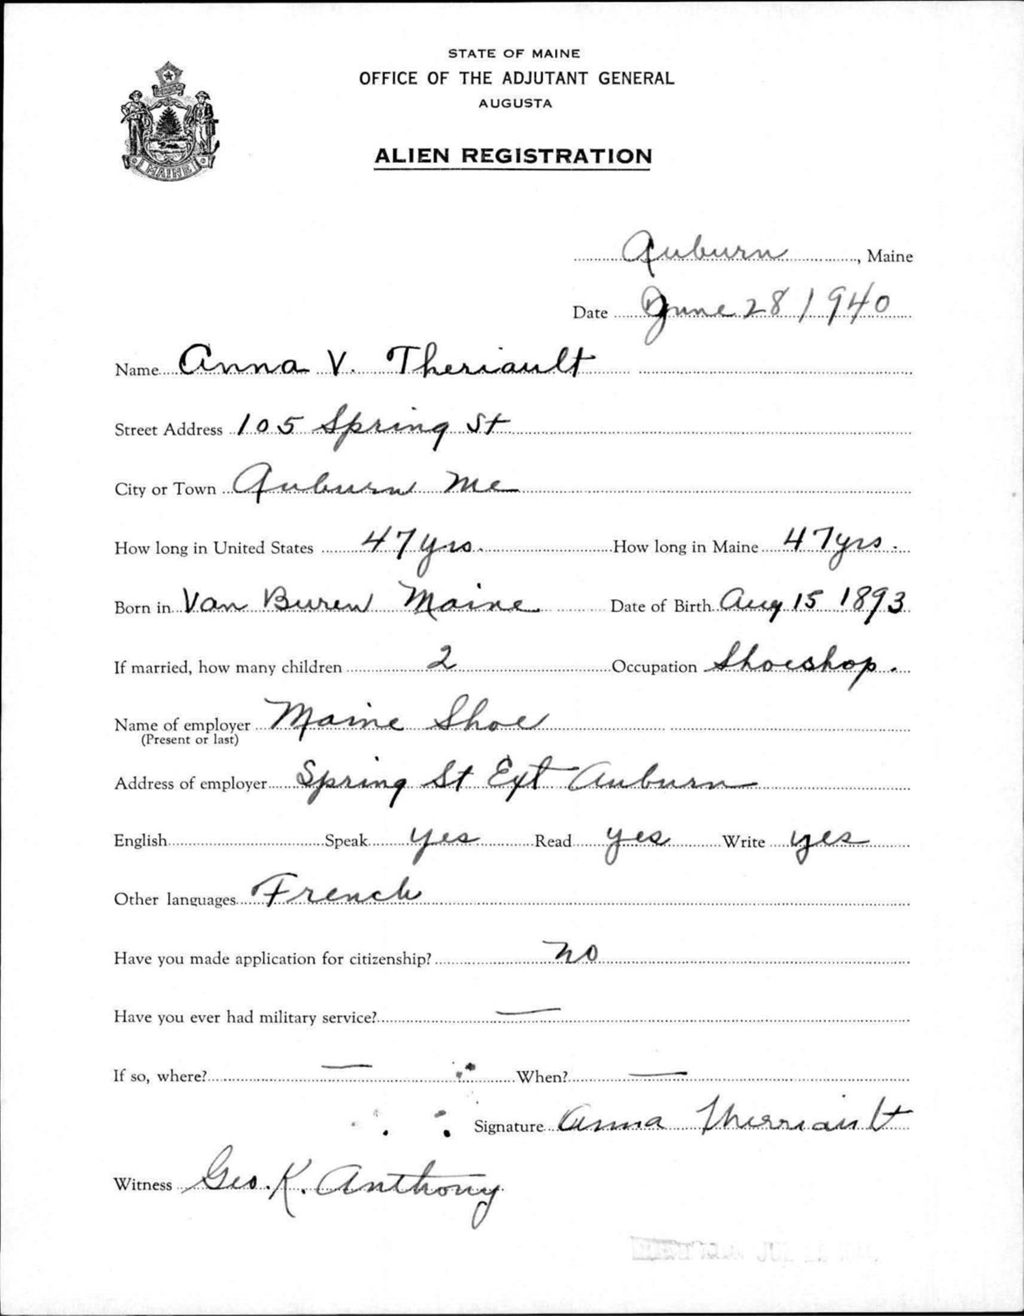 STATE OF MAINE
OFFICE OF THE ADJUTANT GENERAL
AUGUSTA
ALIEN REGISTRATION
MAINE
Auburn, Maine
Date June 28 1940
Name Anna V. Theriault
Street Address 105 Spring St
City or Town Auburn Me
How long in United States 47 yrs. How long in Maine 47 yrs.
Born in Van Buren Maine Date of Birth Aug 15 1893
If married, how many children 2 Occupation Shoeshop.
Name of employer Maine Shoe
(Present or last)
Address of employer Spring St Ext Auburn
English Speak yes Read yes Write yes
Other languages French
Have you made application for citizenship? no
Have you ever had military service? —
If so, where? — When? —
Signature Anna Therriault
Witness Geo. K. Anthony